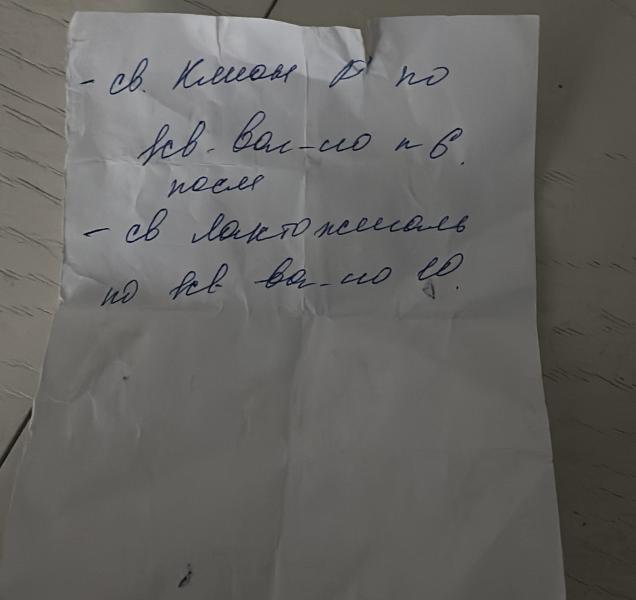 - св. Клион Д по
1св. ваг-но n 6.
после
- св Лактожиналь
по 1св ваг-но 10.